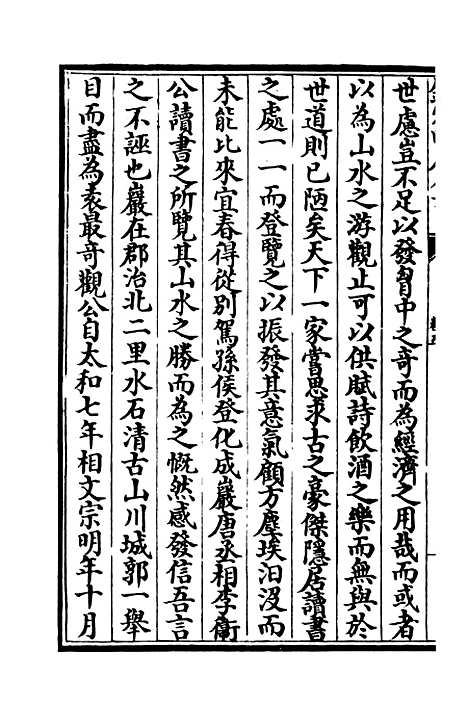 世慮豈不足以發胷中之奇而為經濟之用哉而或者
以為山水之游觀止可以供賦詩飲酒之樂而無與於
世道則已陋矣天下一家嘗思求古之豪傑隱居讀書
之處一一而登覽之以振發其意氣顧方塵埃汩没而
未能比來宜春得從别駕孫侯登化成巖唐丞相李衛
公讀書之所覽其山水之勝而為之慨然感發信吾言
之不誣也巖在郡治北二里水石清古山川城郭一舉
目而盡為袁最竒觀公自太和七年相文宗明年十月